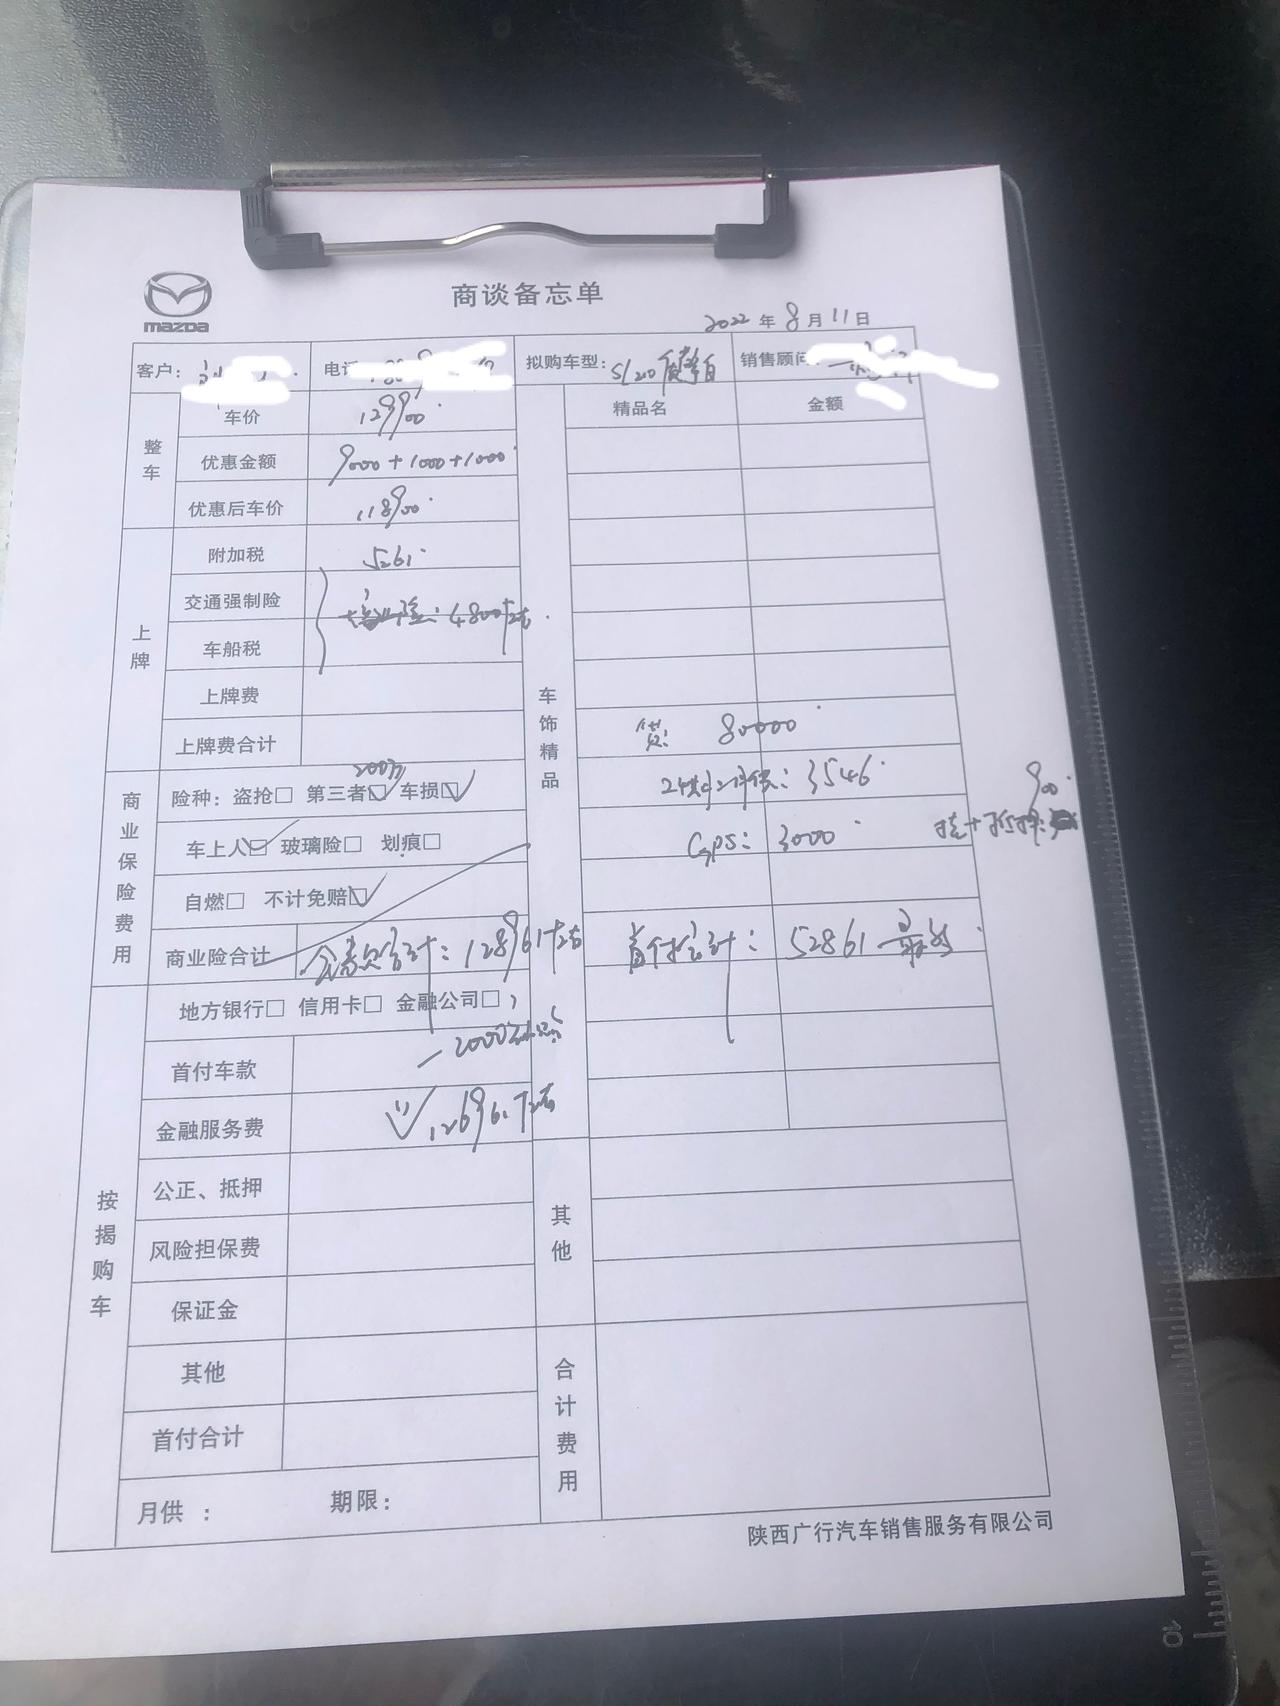 mazda
商谈备忘单
2022年8月11日
客户：
电话
拟购车型：
销售顾问
整车
车价 129900
精品名 金额
优惠金额 9000+1000+1000
优惠后车价 118900
上牌
附加税 5261
交通强制险
保险：4800左右
车船税
上牌费
上牌费合计
车饰精品
贷：80000
3546
GPS：3000
900
商业保险费用
200万
险种：盗抢□ 第三者☑ 车损☑
车上人☑ 玻璃险□ 划痕□
自燃□ 不计免赔☑
商业险合计
全款合计：128961左右
首付合计：52861
按揭购车
地方银行□ 信用卡□ 金融公司□
首付车款
-2000
金融服务费
126961左右
公正、抵押
风险担保费
保证金
其他
首付合计
月供： 期限：
其他
合计费用
陕西广行汽车销售服务有限公司
10